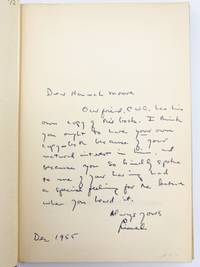 Dear Hannah Moore
Our friend, C.W.G. has his
own copy of his book. I think
you ought to have your own
copy both because of your
natural interest in and
because you so kindly spoke
to me of your having had
a special feeling for the lecture
when you heard it.
Always yours
Dec 1955